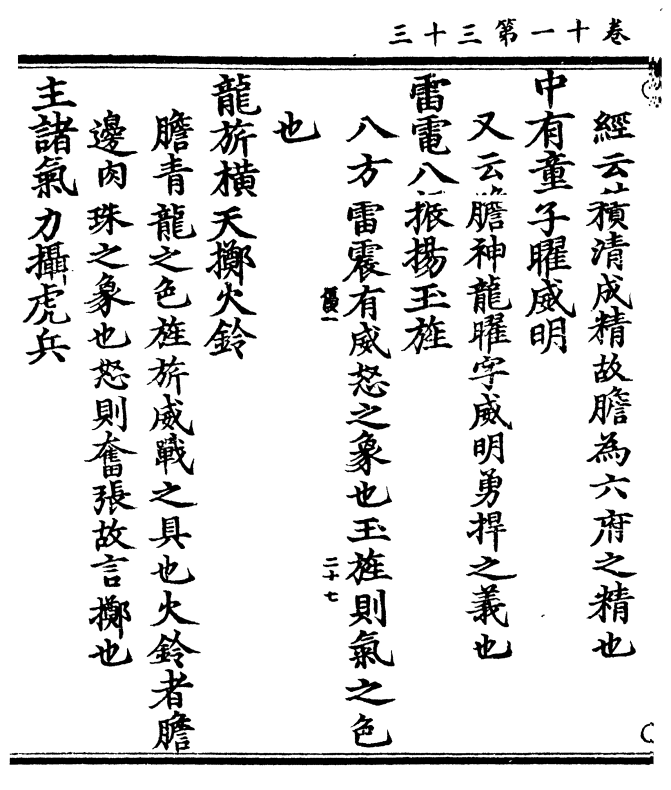 卷十一第三十三
經云積清成精故膽為六府之精也
中有童子曜威明
又云膽神龍曜字威明勇捍之義也
雷電八振揚玉旌
八方雷震有威怒之象也玉旌則氣之色
二十七
也
龍旂橫天擲火鈴
膽青龍之色旌旂威戰之具也火鈴者膽
邊肉珠之象也怒則奮張故言擲也
主諸氣力攝虎兵